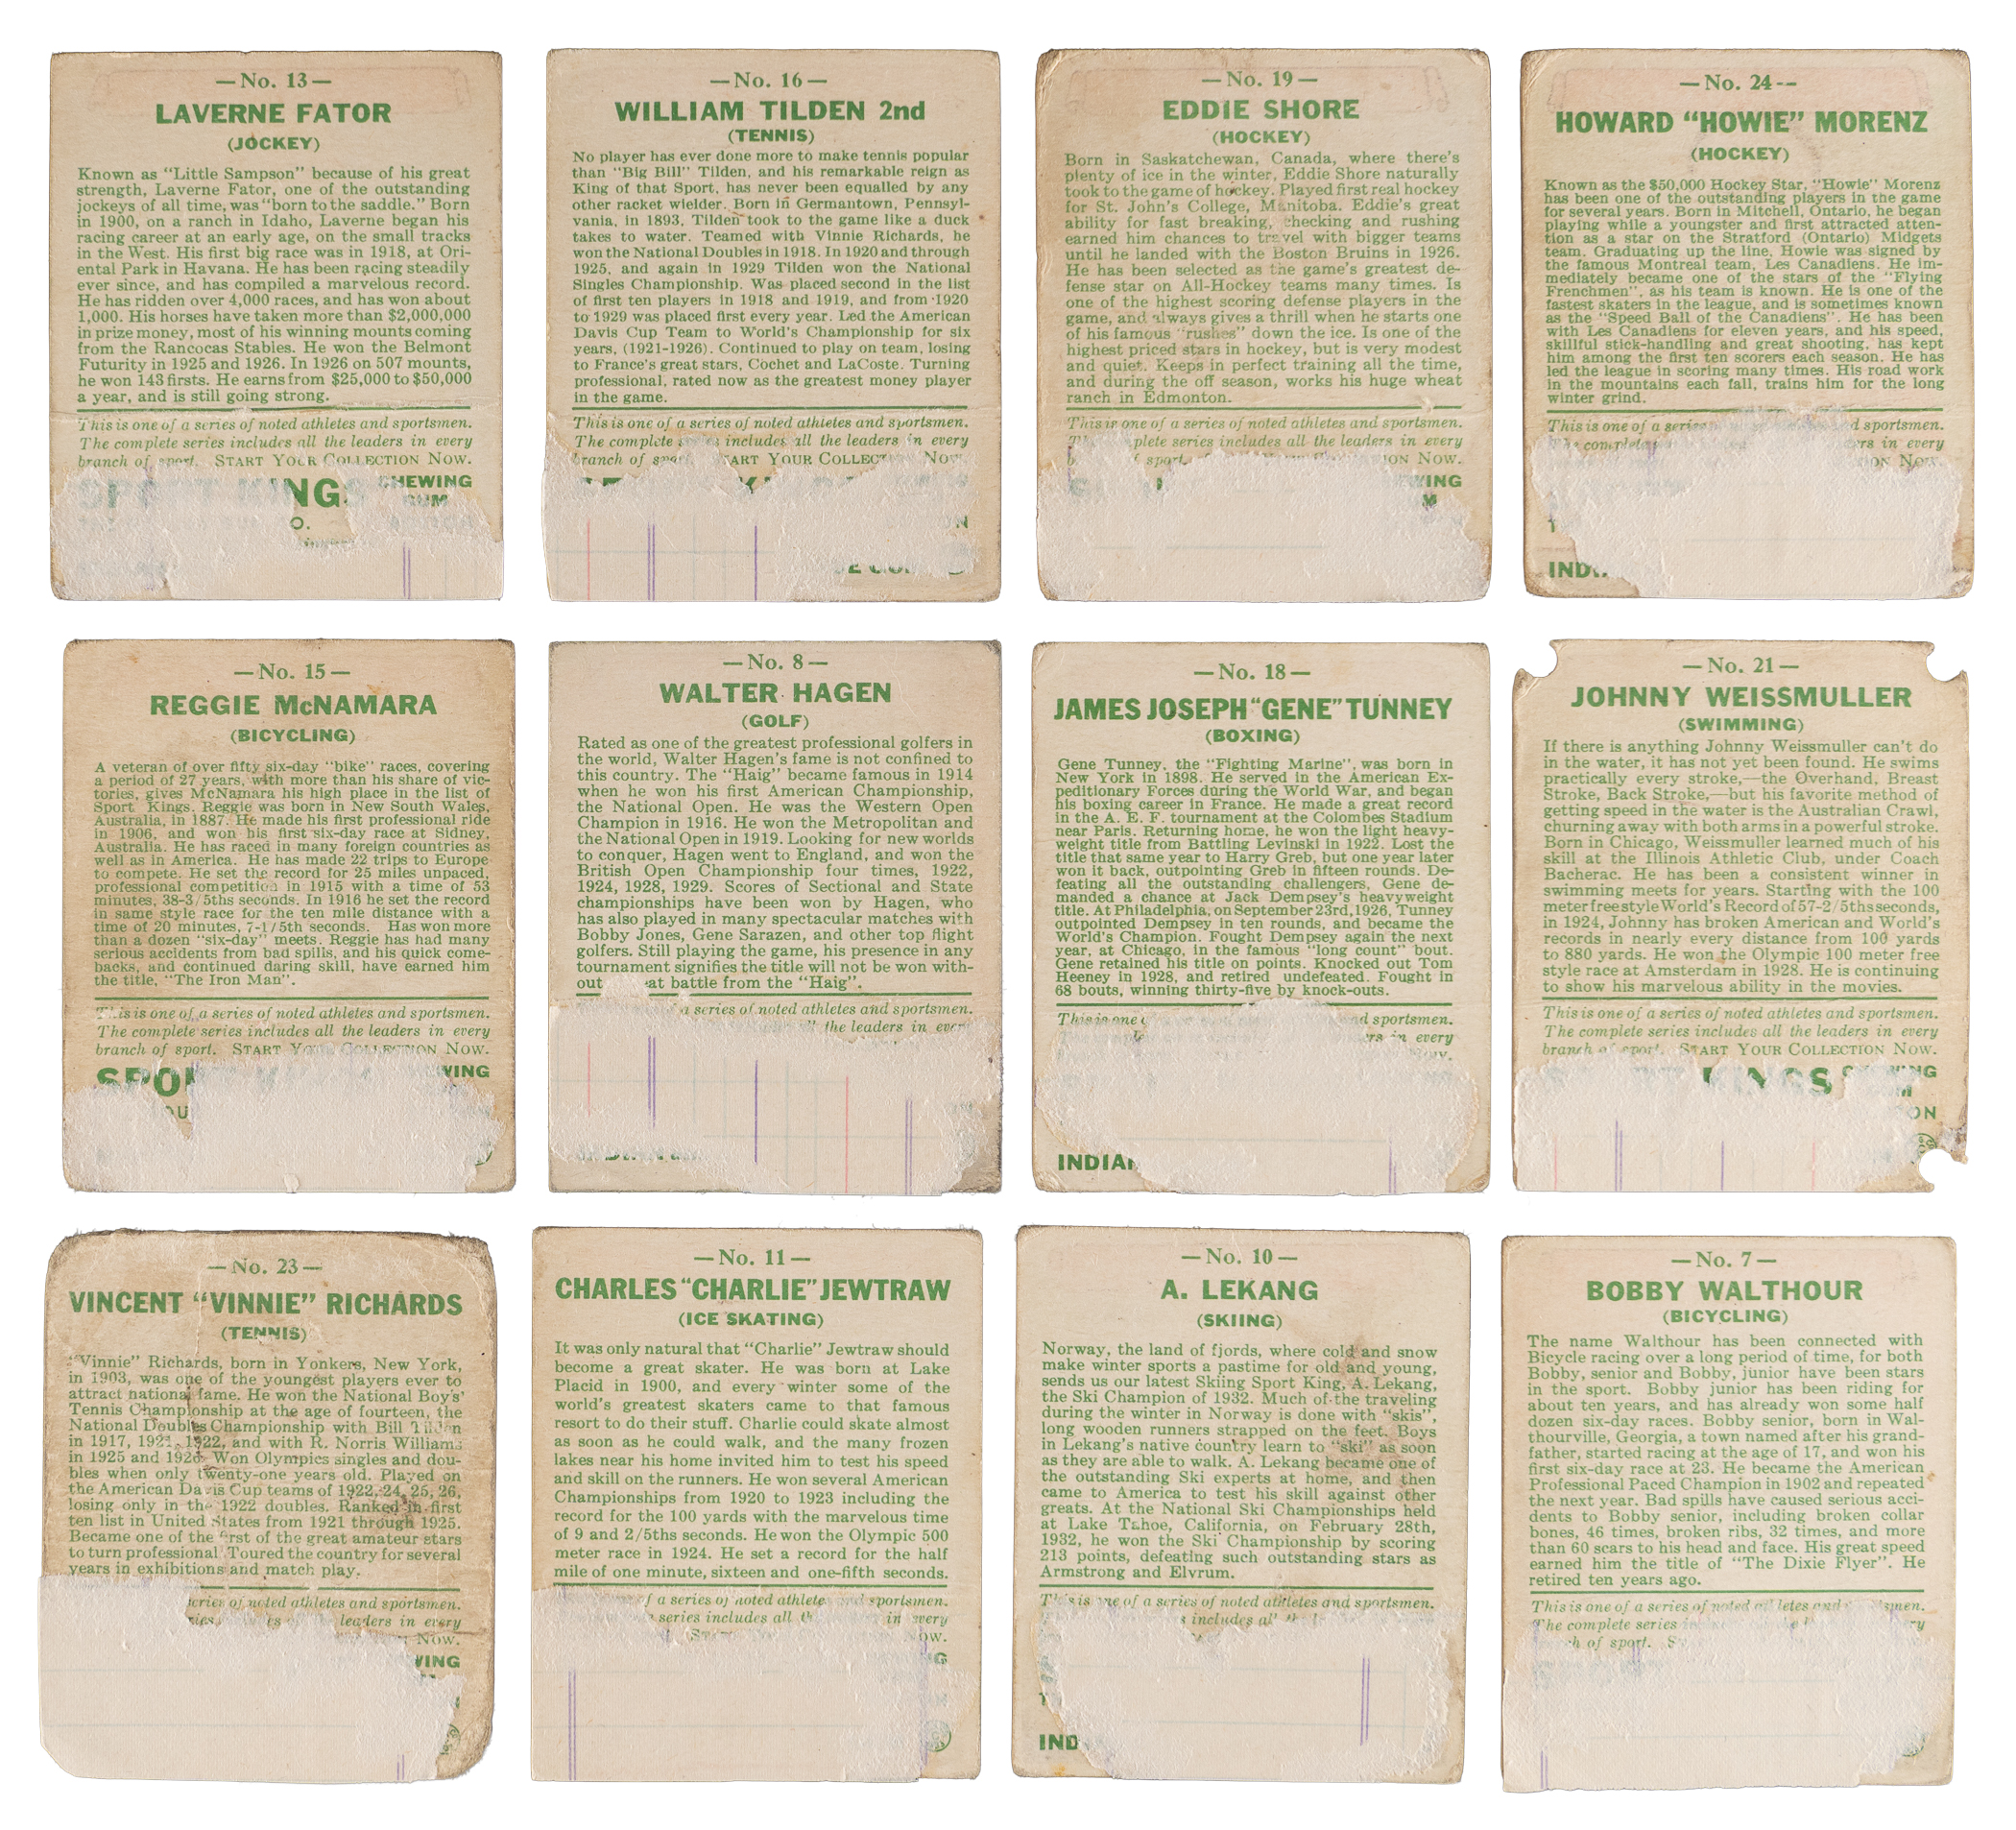 — No. 13 —
LAVERNE FATOR
(JOCKEY)
Known as "Little Sampson" because of his great
strength, Laverne Fator, one of the outstanding
jockeys of all time, was "born to the saddle." Born
in 1900, on a ranch in Idaho, Laverne began his
racing career at an early age, on the small tracks
in the West. His first big race was in 1918, at Ori-
ental Park in Havana. He has been racing steadily
ever since, and has compiled a marvelous record.
He has ridden over 4,000 races, and has won about
1,000. His horses have taken more than $2,000,000
in prize money, most of his winning mounts coming
from the Rancocas Stables. He won the Belmont
Futurity in 1925 and 1926. In 1926 on 507 mounts,
he won 143 firsts. He earns from $25,000 to $50,000
a year, and is still going strong.
This is one of a series of noted athletes and sportsmen.
The complete series includes all the leaders in every
branch of sport. START YOUR COLLECTION NOW.
SPORT KINGS CHEWING
GUM
— No. 16 —
WILLIAM TILDEN 2nd
(TENNIS)
No player has ever done more to make tennis popular
than "Big Bill" Tilden, and his remarkable reign as
King of that Sport, has never been equalled by any
other racket wielder. Born in Germantown, Pennsyl-
vania, in 1893, Tilden took to the game like a duck
takes to water. Teamed with Vinnie Richards, he
won the National Doubles in 1918. In 1920 and through
1925, and again in 1929 Tilden won the National
Singles Championship. Was placed second in the list
of first ten players in 1918 and 1919, and from 1920
to 1929 was placed first every year. Led the American
Davis Cup Team to World's Championship for six
years, (1921-1926). Continued to play on team, losing
to France's great stars, Cochet and LaCoste. Turning
professional, rated now as the greatest money player
in the game.
This is one of a series of noted athletes and sportsmen.
The complete includes all the leaders in every
branch of sport. START YOUR COLLECTION NOW.
— No. 19 —
EDDIE SHORE
(HOCKEY)
Born in Saskatchewan, Canada, where there's
plenty of ice in the winter, Eddie Shore naturally
took to the game of hockey. Played first real hockey
for St. John's College, Manitoba. Eddie's great
ability for fast breaking, checking and rushing
earned him chances to travel with bigger teams
until he landed with the Boston Bruins in 1926.
He has been selected as the game's greatest de-
fense star on All-Hockey teams many times. Is
one of the highest scoring defense players in the
game, and always gives a thrill when he starts one
of his famous "rushes" down the ice. Is one of the
highest priced stars in hockey, but is very modest
and quiet. Keeps in perfect training all the time,
and during the off season, works his huge wheat
ranch in Edmonton.
This is one of a series of noted athletes and sportsmen.
plete series includes all the leaders in every
sport. ION NOW.
WING
M
— No. 24 --
HOWARD "HOWIE" MORENZ
(HOCKEY)
Known as the $50,000 Hockey Star, "Howie" Morenz
has been one of the outstanding players in the game
for several years. Born in Mitchell, Ontario, he began
playing while a youngster and first attracted atten-
tion as a star on the Stratford (Ontario) Midgets
team. Graduating up the line, Howie was signed by
the famous Montreal team, Les Canadiens. He im-
mediately became one of the stars of the "Flying
Frenchmen", as his team is known. He is one of the
fastest skaters in the league, and is sometimes known
as the "Speed Ball of the Canadiens". He has been
with Les Canadiens for eleven years, and his speed,
skillful stick-handling and great shooting, has kept
him among the first ten scorers each season. He has
led the league in scoring many times. His road work
in the mountains each fall, trains him for the long
winter grind.
This is one of a series d sportsmen.
rs in every
ON NOW.
T
IND
— No. 15 —
REGGIE McNAMARA
(BICYCLING)
A veteran of over fifty six-day "bike" races, covering
a period of 27 years, with more than his share of vic-
tories, gives McNamara his high place in the list of
Sport Kings. Reggie was born in New South Wales,
Australia, in 1887. He made his first professional ride
in 1906, and won his first six-day race at Sidney,
Australia. He has raced in many foreign countries as
well as in America. He has made 22 trips to Europe
to compete. He set the record for 25 miles unpaced,
professional competition in 1915 with a time of 53
minutes, 38-3/5ths seconds. In 1916 he set the record
in same style race for the ten mile distance with a
time of 20 minutes, 7-1/5th seconds. Has won more
than a dozen "six-day" meets. Reggie has had many
serious accidents from bad spills, and his quick come-
backs, and continued daring skill, have earned him
the title, "The Iron Man".
This is one of a series of noted athletes and sportsmen.
The complete series includes all the leaders in every
branch of sport. START YOUR COLLECTION NOW.
SPO WING
OU
— No. 8 —
WALTER HAGEN
(GOLF)
Rated as one of the greatest professional golfers in
the world, Walter Hagen's fame is not confined to
this country. The "Haig" became famous in 1914
when he won his first American Championship,
the National Open. He was the Western Open
Champion in 1916. He won the Metropolitan and
the National Open in 1919. Looking for new worlds
to conquer, Hagen went to England, and won the
British Open Championship four times, 1922,
1924, 1928, 1929. Scores of Sectional and State
championships have been won by Hagen, who
has also played in many spectacular matches with
Bobby Jones, Gene Sarazen, and other top flight
golfers. Still playing the game, his presence in any
tournament signifies the title will not be won with-
out eat battle from the "Haig".
a series of noted athletes and sportsmen.
ll the leaders in every
— No. 18 —
JAMES JOSEPH "GENE" TUNNEY
(BOXING)
Gene Tunney, the "Fighting Marine", was born in
New York in 1898. He served in the American Ex-
peditionary Forces during the World War, and began
his boxing career in France. He made a great record
in the A. E. F. tournament at the Colombes Stadium
near Paris. Returning home, he won the light heavy-
weight title from Battling Levinski in 1922. Lost the
title that same year to Harry Greb, but one year later
won it back, outpointing Greb in fifteen rounds. De-
feating all the outstanding challengers, Gene de-
manded a chance at Jack Dempsey's heavyweight
title. At Philadelphia, on September 23rd, 1926, Tunney
outpointed Dempsey in ten rounds, and became the
World's Champion. Fought Dempsey again the next
year, at Chicago, in the famous "long count" bout.
Gene retained his title on points. Knocked out Tom
Heeney in 1928, and retired undefeated. Fought in
68 bouts, winning thirty-five by knock-outs.
This is one d sportsmen.
rs in every
INDIA
— No. 21 —
JOHNNY WEISSMULLER
(SWIMMING)
If there is anything Johnny Weissmuller can't do
in the water, it has not yet been found. He swims
practically every stroke,—the Overhand, Breast
Stroke, Back Stroke,—but his favorite method of
getting speed in the water is the Australian Crawl,
churning away with both arms in a powerful stroke.
Born in Chicago, Weissmuller learned much of his
skill at the Illinois Athletic Club, under Coach
Bacherac. He has been a consistent winner in
swimming meets for years. Starting with the 100
meter freestyle World's Record of 57-2/5ths seconds,
in 1924, Johnny has broken American and World's
records in nearly every distance from 100 yards
to 880 yards. He won the Olympic 100 meter free
style race at Amsterdam in 1928. He is continuing
to show his marvelous ability in the movies.
This is one of a series of noted athletes and sportsmen.
The complete series includes all the leaders in every
branch of sport. START YOUR COLLECTION NOW.
KINGS
ON
— No. 23 —
VINCENT "VINNIE" RICHARDS
(TENNIS)
"Vinnie" Richards, born in Yonkers, New York,
in 1903, was one of the youngest players ever to
attract national fame. He won the National Boys'
Tennis Championship at the age of fourteen, the
National Doubles Championship with Bill Tilden
in 1917, 1921, 1922, and with R. Norris Williams
in 1925 and 1926. Won Olympics singles and dou-
bles when only twenty-one years old. Played on
the American Davis Cup teams of 1922, 24, 25, 26,
losing only in the 1922 doubles. Ranked in first
ten list in United States from 1921 through 1925.
Became one of the first of the great amateur stars
to turn professional. Toured the country for several
years in exhibitions and match play.
series of noted athletes and sportsmen.
leaders in every
NOW.
WING
— No. 11 —
CHARLES "CHARLIE" JEWTRAW
(ICE SKATING)
It was only natural that "Charlie" Jewtraw should
become a great skater. He was born at Lake
Placid in 1900, and every winter some of the
world's greatest skaters came to that famous
resort to do their stuff. Charlie could skate almost
as soon as he could walk, and the many frozen
lakes near his home invited him to test his speed
and skill on the runners. He won several American
Championships from 1920 to 1923 including the
record for the 100 yards with the marvelous time
of 9 and 2/5ths seconds. He won the Olympic 500
meter race in 1924. He set a record for the half
mile of one minute, sixteen and one-fifth seconds.
f a series of noted athlete sportsmen.
series includes all th in every
— No. 10 —
A. LEKANG
(SKIING)
Norway, the land of fjords, where cold and snow
make winter sports a pastime for old and young,
sends us our latest Skiing Sport King, A. Lekang,
the Ski Champion of 1932. Much of the traveling
during the winter in Norway is done with "skis",
long wooden runners strapped on the feet. Boys
in Lekang's native country learn to "ski" as soon
as they are able to walk. A. Lekang became one of
the outstanding Ski experts at home, and then
came to America to test his skill against other
greats. At the National Ski Championships held
at Lake Tahoe, California, on February 28th,
1932, he won the Ski Championship by scoring
213 points, defeating such outstanding stars as
Armstrong and Elvrum.
This is one of a series of noted athletes and sportsmen.
s includes all
IND
— No. 7 —
BOBBY WALTHOUR
(BICYCLING)
The name Walthour has been connected with
Bicycle racing over a long period of time, for both
Bobby, senior and Bobby, junior have been stars
in the sport. Bobby junior has been riding for
about ten years, and has already won some half
dozen six-day races. Bobby senior, born in Wal-
thourville, Georgia, a town named after his grand-
father, started racing at the age of 17, and won his
first six-day race at 23. He became the American
Professional Paced Champion in 1902 and repeated
the next year. Bad spills have caused serious acci-
dents to Bobby senior, including broken collar
bones, 46 times, broken ribs, 32 times, and more
than 60 scars to his head and face. His great speed
earned him the title of "The Dixie Flyer". He
retired ten years ago.
This is one of a series of noted athletes and sportsmen.
The complete series
ch of sport.